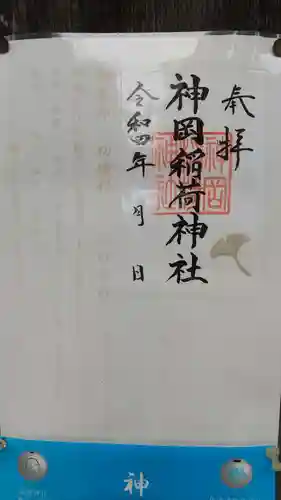 奉拝
神岡稲荷神社
令和四年 月 日
神